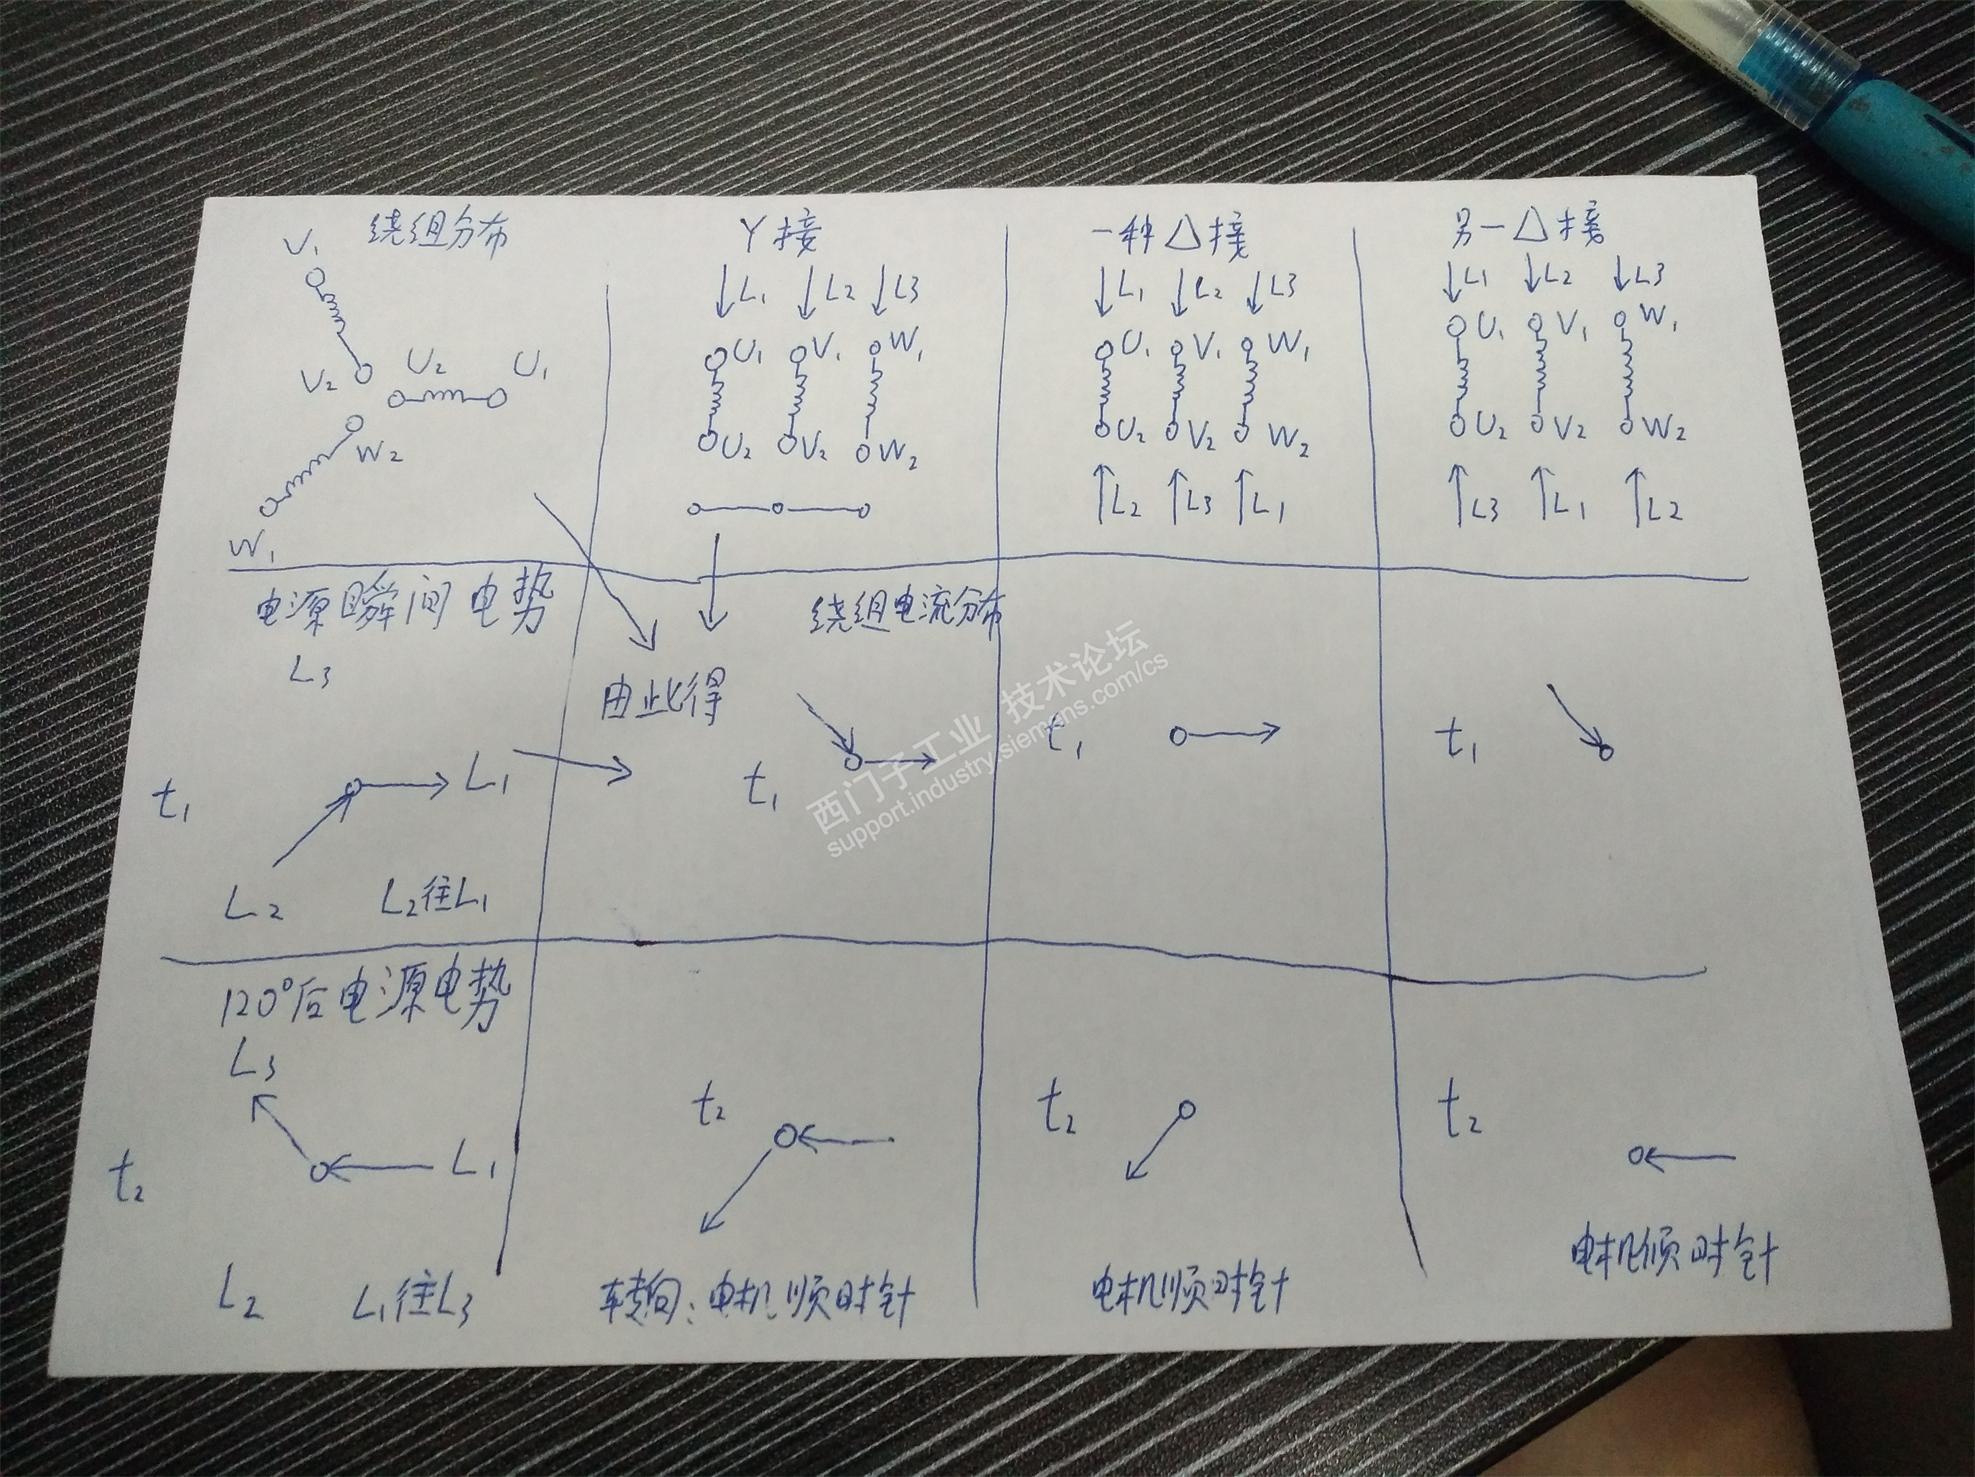 绕组分布
V₁
V₂
U₂
U₁
W₂
W₁
Y接
L₁ L₂ L3
U₁ V₁ W₁
U₂ V₂ W₂
一种△接
L₁ L₂ L3
U₁ V₁ W₁
U₂ V₂ W₂
L₂ L3 L₁
另一△接
L1 L₂ L3
U₁ V₁ W₁
U₂ V₂ W₂
L3 L₁ L2
电源瞬间电势
L₃
t₁
L₁
L₂
L₂往L₁
由此得
绕组电流分布
t₁
t₁
t₁
西门子工业 技术论坛
support.industry.siemens.com/cs
120°后电源电势
L₃
t₂
L₁
L₂
L₁往L₃
t₂
转向:电机顺时针
t₂
电机顺时针
t₂
电机顺时针